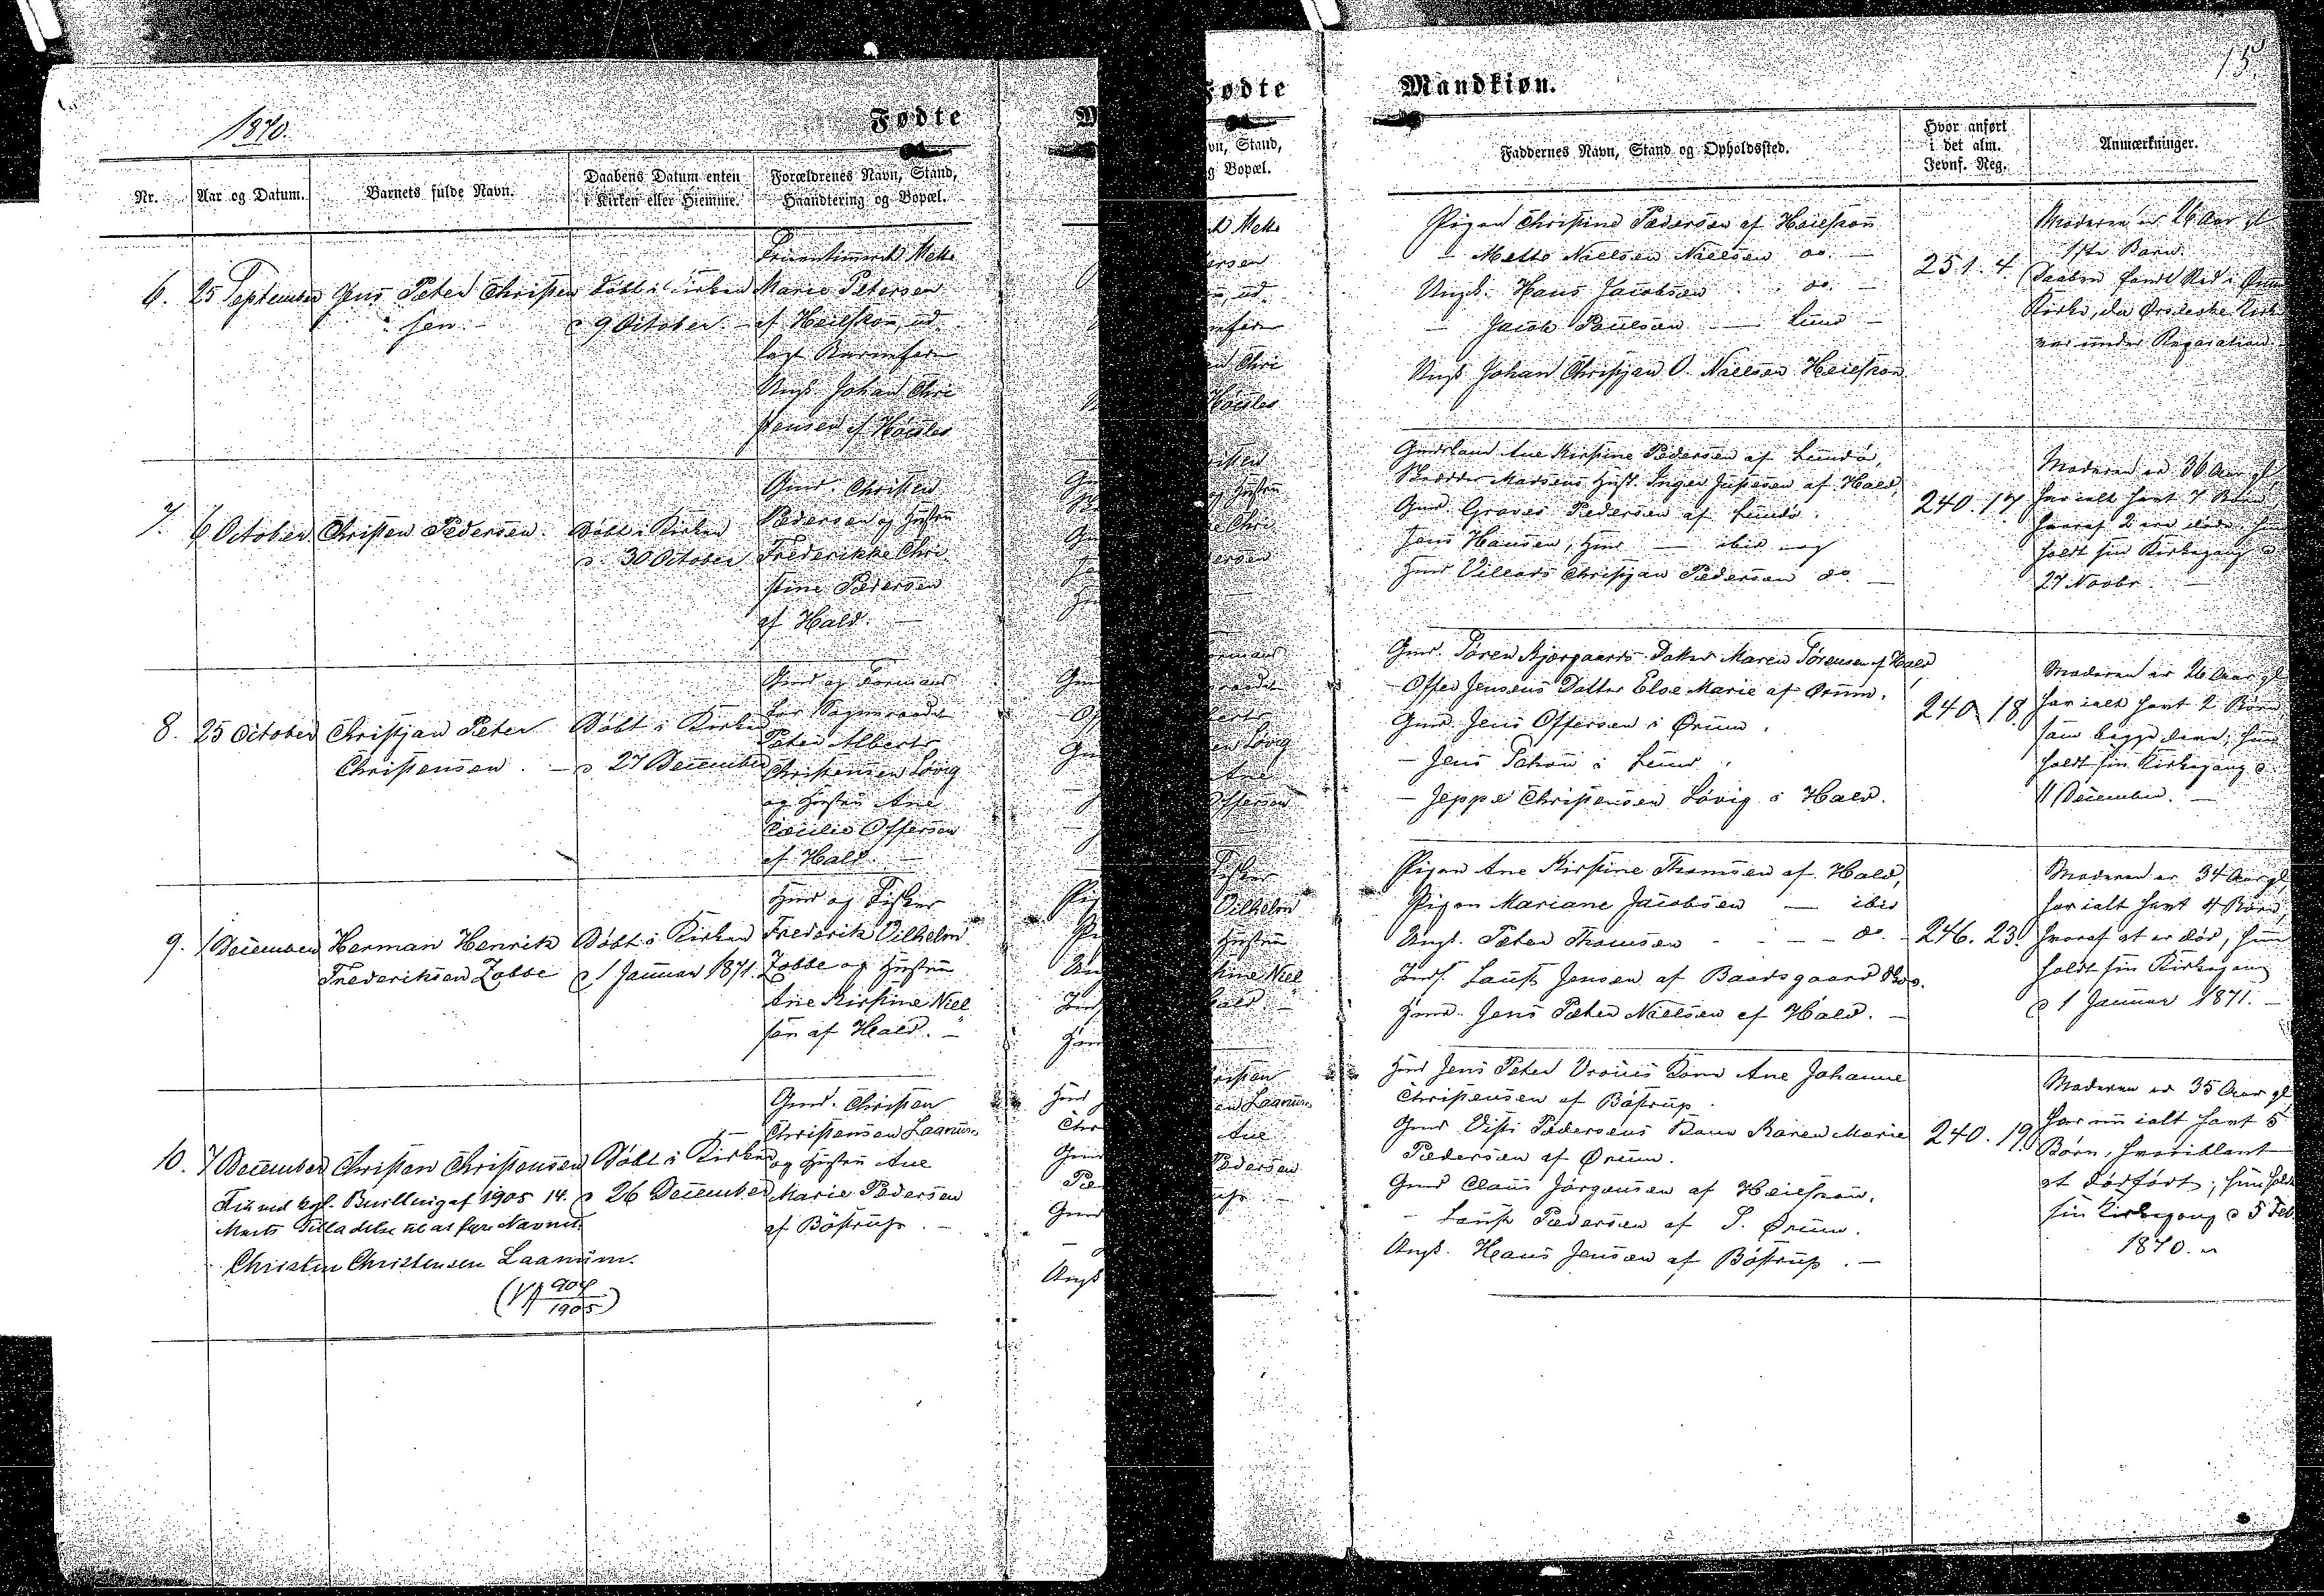 1870.
Fødte
Nr.
Aar og Datum.
Barnets fulde Navn.
Daabens Datum enten
i Kirken eller Hiemme.
Forældrenes Navn, Stand,
Haandtering og Bopæl.
6.
25 September
Jens Peter Christen
sen.
Døbt i Kirken
d 9 October.
Fruentimmeret Mette
Marie Petersen
af Heilskou, ud
lagt Barnefader
Ungk. Johan Chri
stensen af Høislev
7.
6 October
Christen Pedersen.
Døbt i Kirken
d. 30 October
Gmd. Christen
Pedersen og Hustru
Frederikke Chri
stine Pedersen
af Hald.
8.
25 October
Christjan Peter
Christensen.
Døbt i Kirken
d 27 December
Gmd og Formand
for Sogneraadet
Peter Albert
Christensen Løvig
og Hustru Ane
Cecilie Offersen
af Hald.
9.
1 December
Herman Henrik
Frederiksen Zobbe
Døbt i Kirken
d 1 Januar 1871.
Hmd og Fisker
Frederik Vilhelm
Zobbe og Hustru
Ane Kirstine Niel
sen af Hald.
10.
7 December
Christen Christensen
Døbt i Kirken
d 26 December
Gmd. Christen
Christensen Laanum
og Hustru Ane
Marie Pedersen
af Bøstrup.
Fik ved kgl. Bevilling af 1905 14.
Marts Tilladelse til at føre Navnet
Christen Christensen Laanum.
(VA 904/1905)
15.
Mandkiøn.
Faddernes Navn, Stand og Opholdssted.
Hvor anført
i det alm.
Jevnf. Reg.
Anmærkninger.
Pigen Christine Pedersen af Heilskou
- Mette Nielsen Nielsen do. -
Ungk. Hans Jacobsen do. -
- Jacob Poulsen - Lund -
Ungk. Johan Christjan O. Nielsen Heilskou
251. 4.
Moderen er 26 Aar gl
1ste Barn.
Daaben fandt Sted i Ørum
Kirke, da Ørslevkl. Kirke
var under Reparation.
Gmdsland Ane Kirstine Pedersen af Lundø,
Skrædder Madsens Hust. Inger Jepsen af Hald,
Gmd. Graves Pedersen af Lundø.
Jens Hansen, Hmd - ibid og
Hmd Villads Christjan Pedersen do. -
240. 17
Moderen er 36 Aar gl,
har ialt havt 7 Børn,
hvoraf 2 ere døde; hun
holdt sin Kirkegang d
27 Novbr. -
Gmd. Søren Kjærgaards Datter Maren Sørensen af Hald,
- Offer Jensens Datter Else Marie af Ørum.
Gmd. Jens Offersen i Ørum.
- Jens Schou i Lund.
- Jeppe Christensen Løvig i Hald.
240. 18.
Moderen er 26 Aar gl
har ialt havt 2 Børn
som begge leve; hun
holdt sin Kirkegang d.
11 December. -
Pigen Ane Kirstine Thomsen af Hald,
Pigen Mariane Jacobsen - ibid
Ungk. Peter Thomsen - - - do. -
Inds. Laust Jensen af Baadsgaard
Hmd. Jens Peter Nielsen af Hald. -
246. 23.
Moderen er 34 Aar gl,
har ialt havt 4 Børn,
hvoraf et er død; hun
holdt sin Kirkegang
d 1 Januar 1871. -
Hmd Jens Peter Vroues Kone Ane Johanne
Christensen af Bøstrup.
Gmd Visti Pedersens Kone Karen Marie
Pedersen af Ørum.
Gmd Claus Jørgensen af Heilskou.
- Laust Pedersen af S. Ørum.
Ungk. Hans Jensen af Bøstrup. -
240. 19.
Moderen er 35 Aar gl,
har nu ialt havt 5
Børn, hvoriblandt
et dødfødt; hun holdt
sin Kirkegang d 5 Feb
1870.